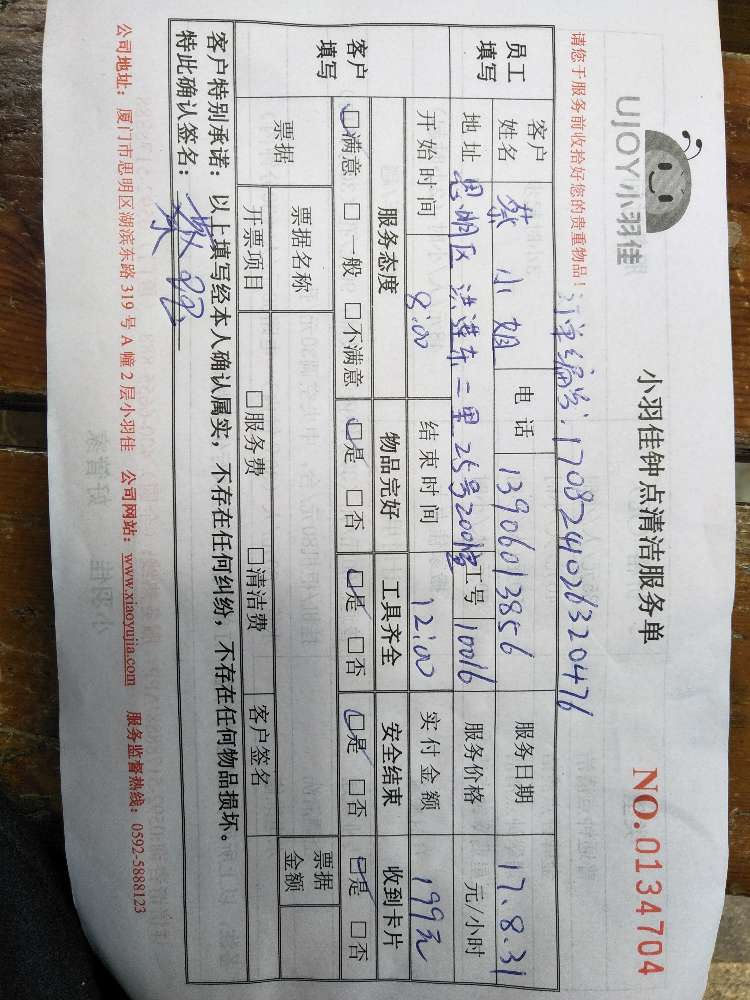 UJOY小羽佳
小羽佳钟点清洁服务单
NO.0134704
请您于服务前收拾好您的贵重物品！
订单编号：1708241026320476
员工填写
客户姓名 蔡小姐 电话 13906013856 服务日期 17.8.31
地址 思明区洪莲东二里25号2001室 工号 10016 服务价格 元/小时
开始时间 8:00 结束时间 12:00 实付金额 199元
客户填写
服务态度 物品完好 工具齐全 安全结束 收到卡片
□满意 □一般 □不满意 □是 □否 □是 □否 □是 □否 □是 □否
票据 票据名称 客户签名 票据金额
开票项目 □服务费 □清洁费
客户特别承诺：以上填写经本人确认属实，不存在任何纠纷，不存在任何物品损坏。
特此确认签名：
公司地址：厦门市思明区湖滨东路319号A幢2层小羽佳 公司网站：www.xiaoyujia.com 服务监督热线：0592-5888123